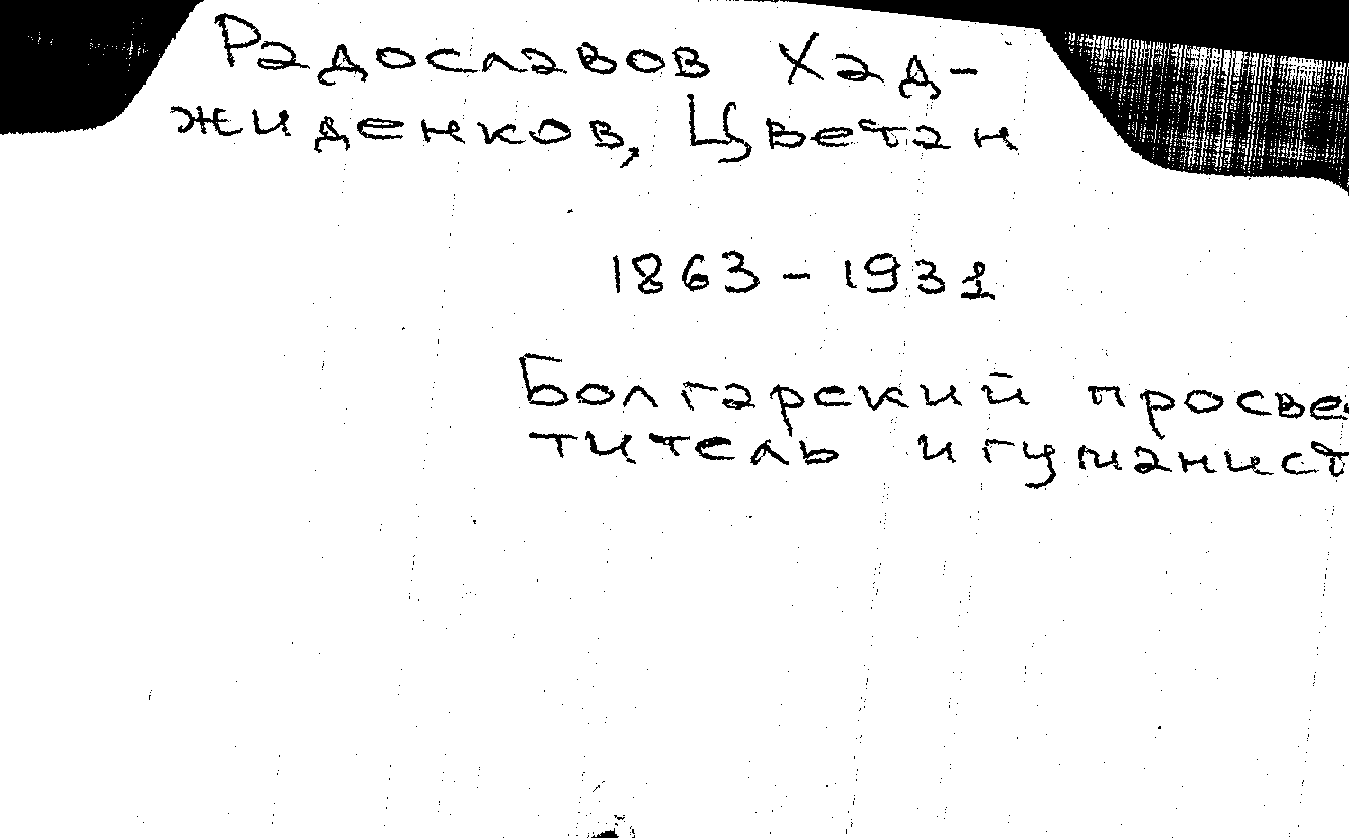 Радославов Хад-
жиденков, Цветан
1863 - 1931
Болгарский просве
титель и гуманист